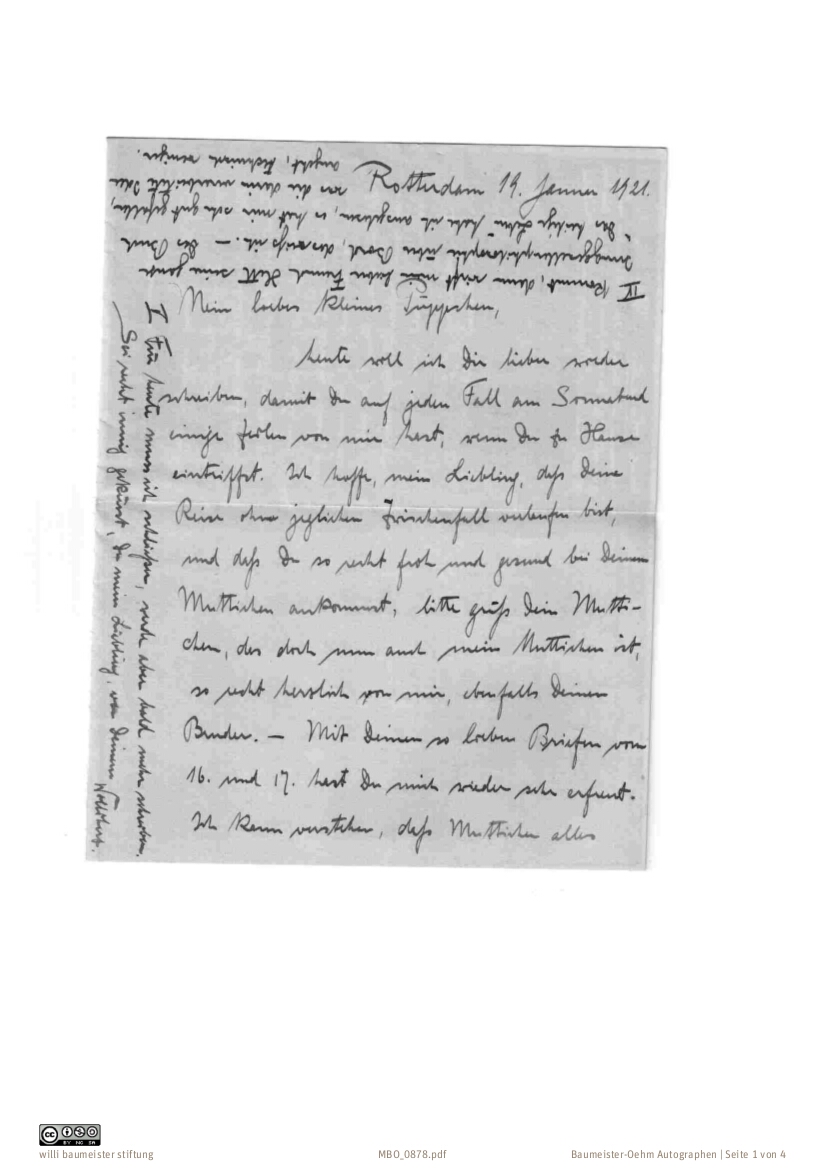 Rotterdam 19. Januar 1921.
Mein liebes kleines Püppchen,
heute will ich Dir lieber wieder
schreiben, damit Du auf jeden Fall am Sonnabend
einige Zeilen von mir hast, wenn Du zu Hause
eintriffst. Ich hoffe, mein Liebling, daß Deine
Reise ohne jeglichen Zwischenfall verlaufen ist,
und daß Du so recht froh und gesund bei Deinem
Muttichen ankommst, bitte grüß Dein Mutti-
chen, das doch nun auch mein Muttichen ist,
so recht herzlich von mir, ebenfalls Deinen
Bruder. — Mit Deinen so lieben Briefen vom
16. und 17. hast Du mich wieder sehr erfreut.
Ich kann verstehen, daß Muttichen alles
IV kommt, dann wirft mein lieber Freund seine ganze
Junggesellenphilosophie über Bord, das weiß ich. — Das Buch
"das heilige " habe ich ausgelesen, es hat mir sehr gut gefallen,
was die darin verarbeitete Idee
angeht, technisch weniger.
V Für heute muss ich schließen, werde aber bald mehr schreiben.
Sei recht innig geküsst, Du mein Liebling, von Deinem
willi baumeister stiftung
MBO_0878.pdf
Baumeister-Oehm Autographen | Seite 1 von 4
CC BY NC SA